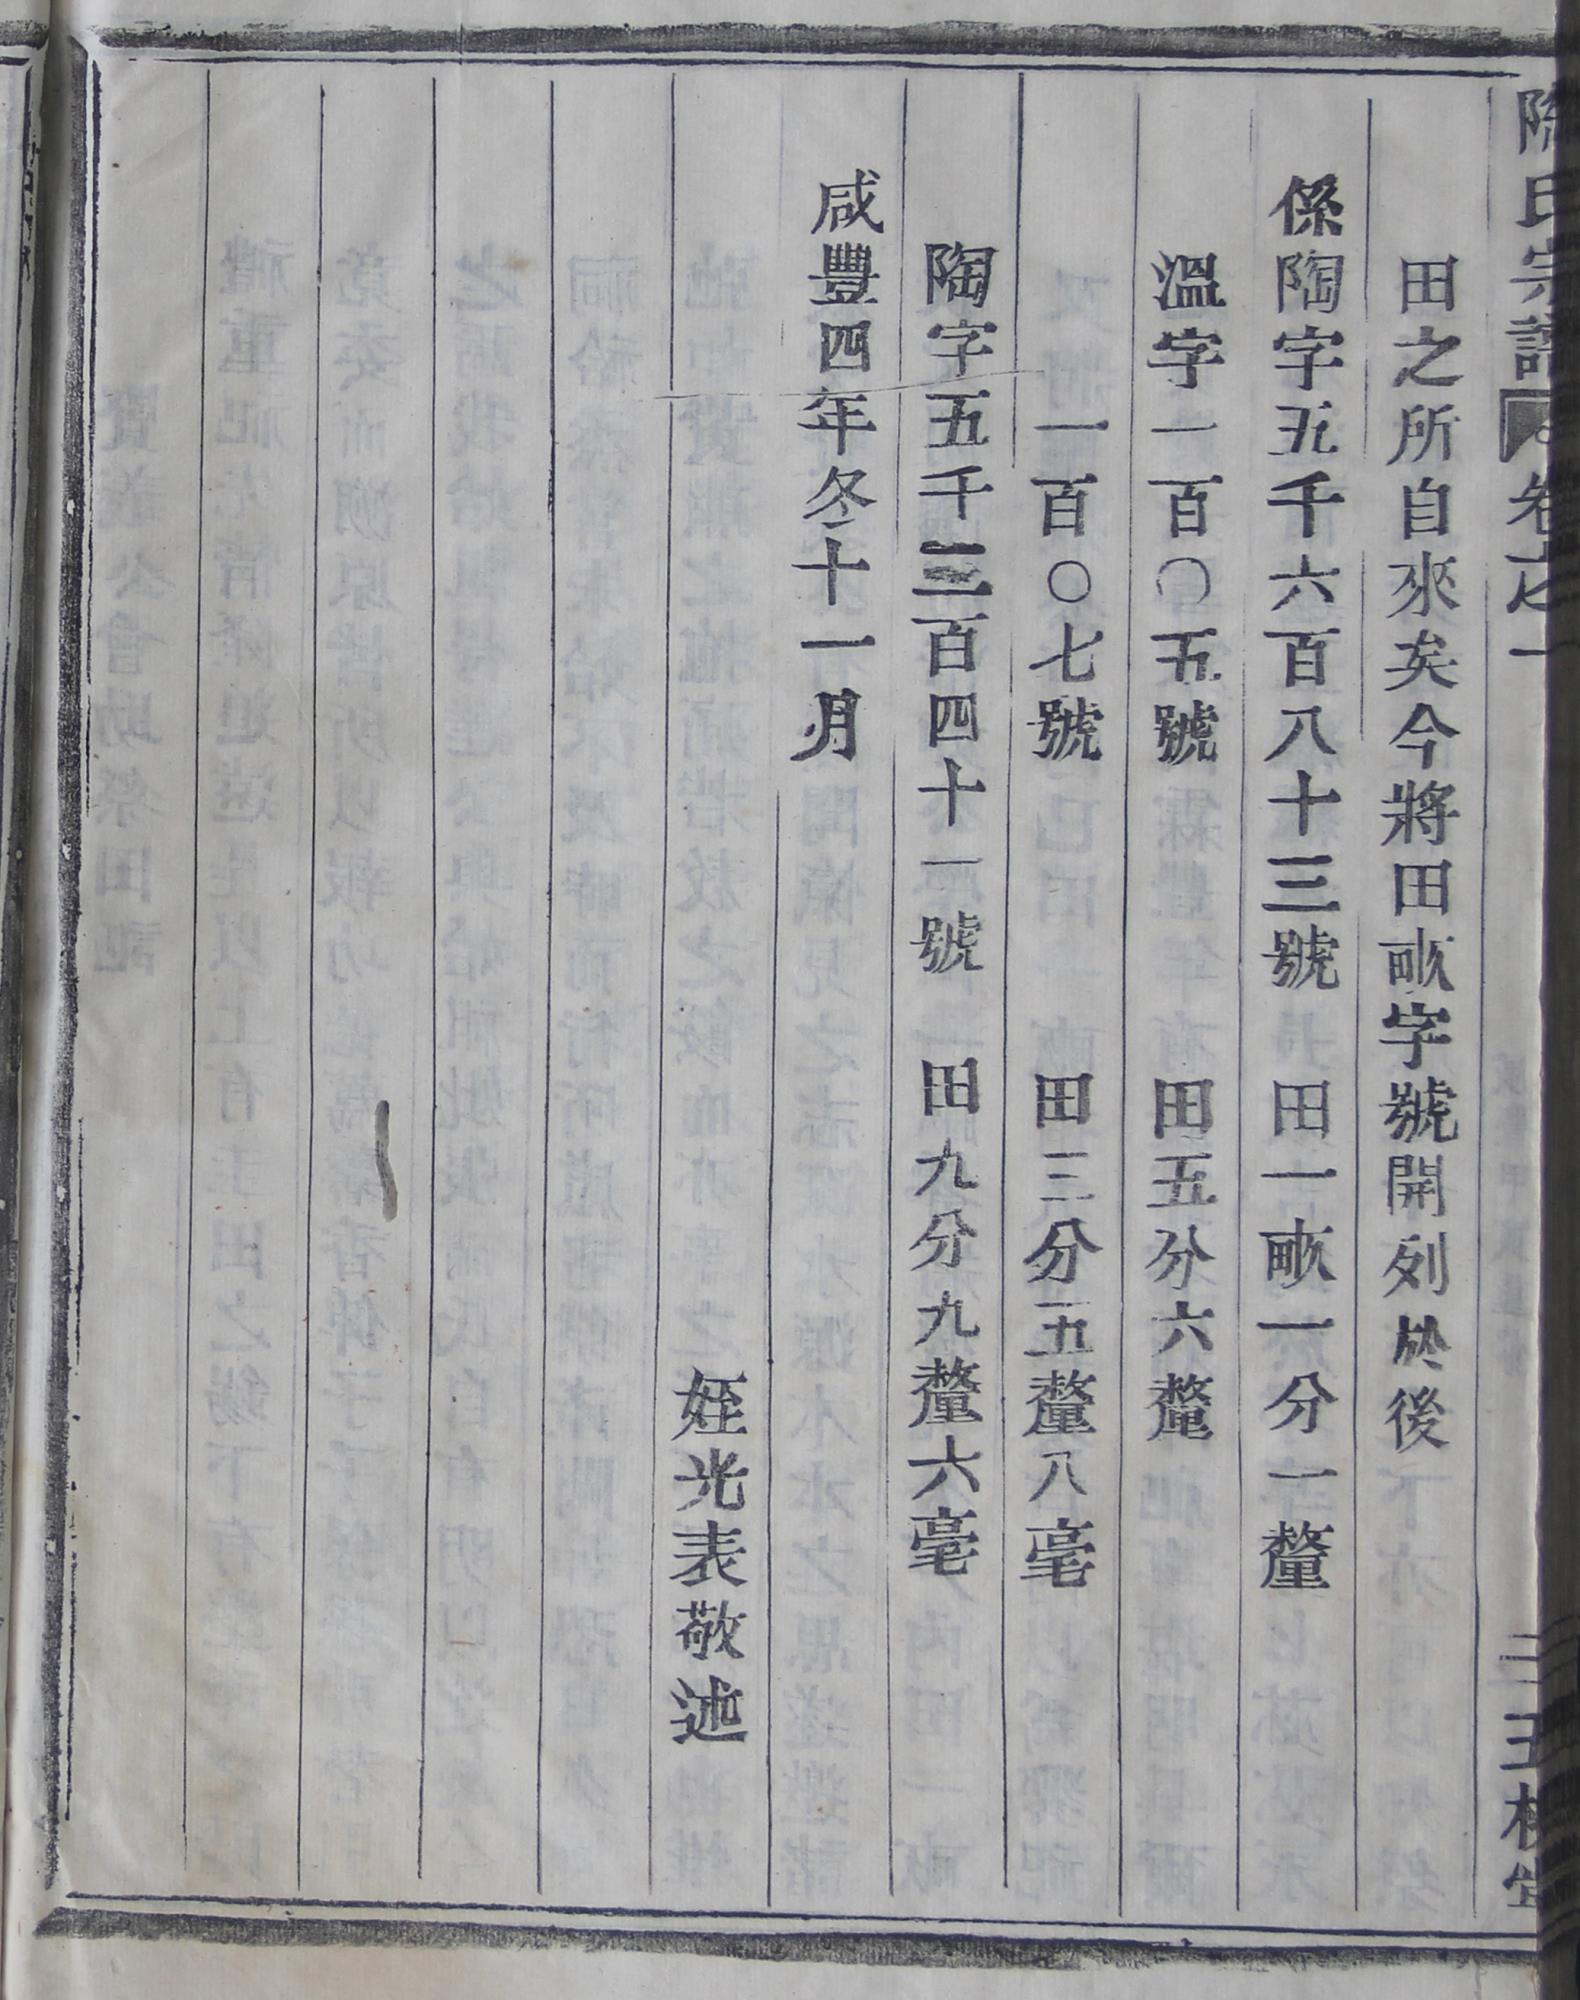 陳氏宗譜 卷之一 三五桂堂
田之所自來矣今將田畝字號開列於後
係陶字五千六百八十三號 田一畝一分一釐
溫字一百〇五號 田五分六釐
一百〇七號 田三分五釐八毫
陶字五千三百四十一號 田九分九釐六毫
咸豐四年冬十一月
姪光表敬述